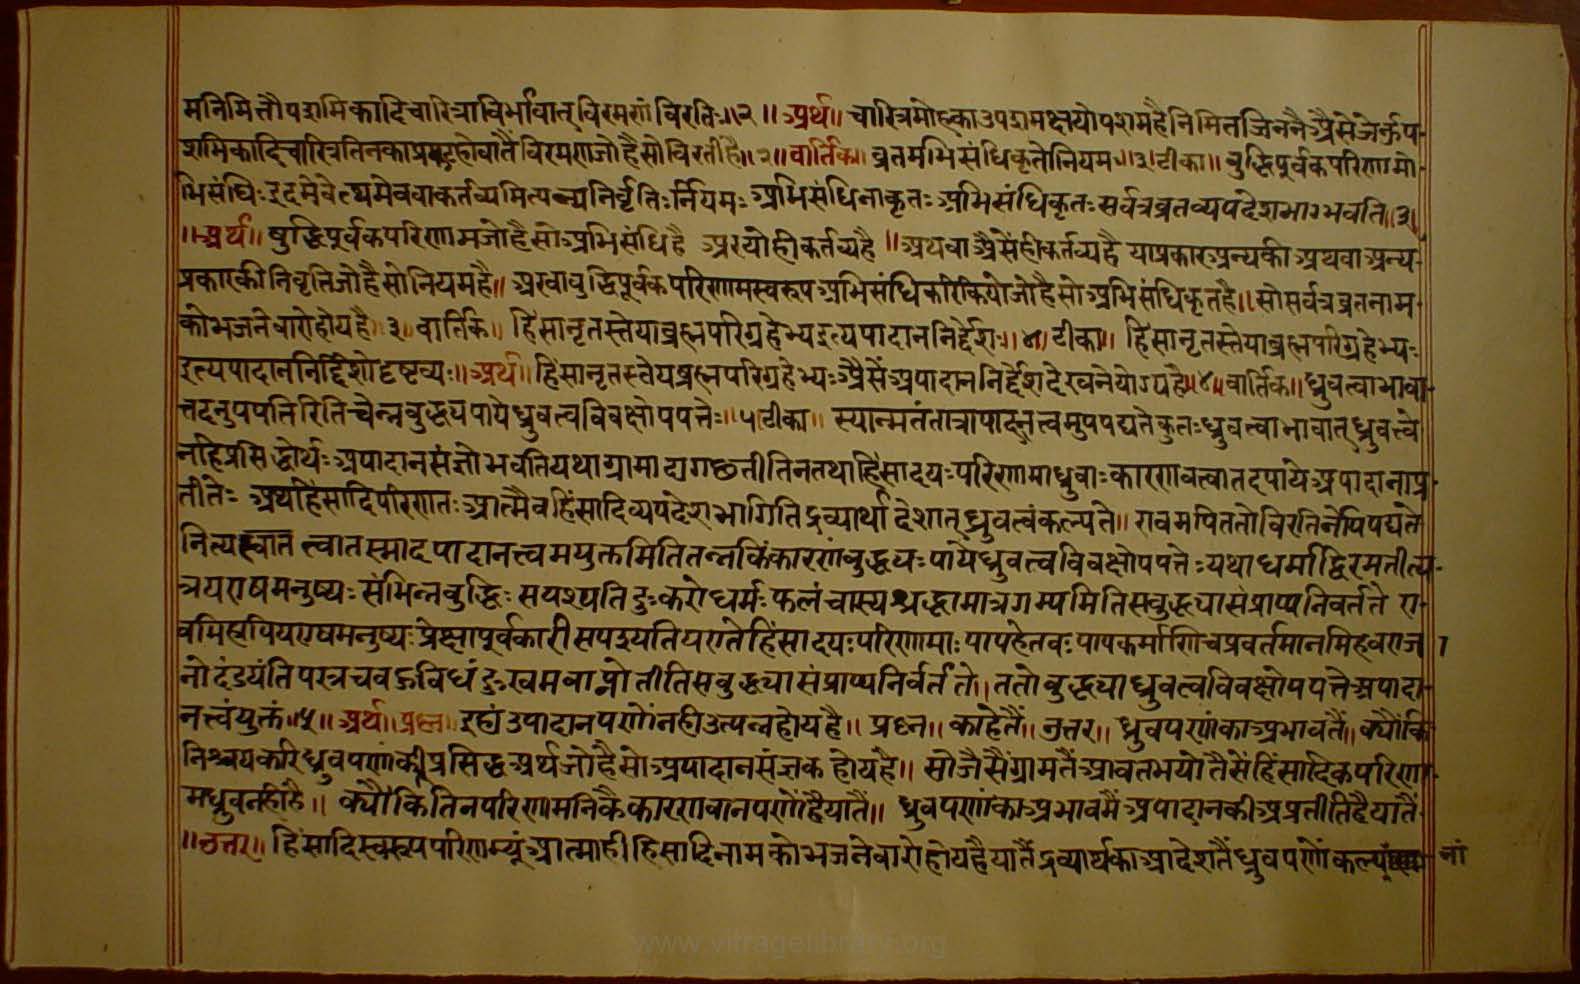 मनिमित्तौपशमिकादिचारित्राविर्भावात् विरमणं विरतिः॥२॥ अर्थ॥ चारित्रमोहका उपशम क्षयोपशम है निमित्त जिननै अैसे जे औप-
शमिकादिचारित्र तिनका प्रगट होवातैं विरमण जो है सो विरती है॥२॥ वार्तिक॥ व्रतमभिसंधिकृतो नियमः॥३॥ टीका॥ बुद्धिपूर्वकपरिणामो
भिसंधिः इदमेवेत्थमेव वा कर्तव्यमित्यन्यनिर्वृतिः र्नियमः अभिसंधिनाकृतः अभिसंधिकृतः सर्वत्र व्रतव्यपदेशभाग्भवति॥३॥
॥अर्थ॥ बुद्धिपूर्वकपरिणाम जो है सो अभिसंधि है अरयोही कर्तव्य है॥ अथवा अैसैंही कर्तव्य है या प्रकार अन्यकी अथवा अन्य
प्रकारकी निवृत्ति जो है सो नियम है॥ अर वा बुद्धिपूर्वकपरिणामस्वरूप अभिसंधि करि कियो जो है सो अभिसंधिकृत है॥ सो सर्वत्र व्रतनाम
को भजनेवारो होय है॥३॥ वार्तिक॥ हिंसानृतस्तेयाब्रह्मपरिग्रहेभ्य इत्यपादाननिर्देशः॥४॥ टीका॥ हिंसानृतस्तेयाब्रह्मपरिग्रहेभ्यः
इत्यपादाननिर्द्दिशो दृष्टव्यः॥ अर्थ॥ हिंसानृतस्तेयब्रह्मपरिग्रहेभ्यः अैसैं अपादाननिर्द्देश देखनेयोग्य है॥४॥ वार्तिक॥ ध्रुवत्वाभावा-
त्तदनुपपत्तिरिति चेन्न बुद्ध्यपाये ध्रुवत्वविवक्षोपपत्तेः॥५॥ टीका॥ स्यान्मतं तात्रापादानत्वमुपपद्यते कुतः ध्रुवत्वाभावात् ध्रुवत्वे
नहि प्रसिद्धोर्थः अपादानसंज्ञो भवति यथा ग्रामादागछतीति न तथा हिंसादयः परिणामा ध्रुवाः कारणवत्वात् तदपाये अपादानाप्र
तीतेः अथ हिंसादिपरिणतः आत्मैव हिंसादिव्यपदेशभागिति द्रव्यार्थादेशात् ध्रुवत्वं कल्पते॥ एवमपि ततो विरतिर्नोपपद्यते
नित्यत्वात तस्मादपादानत्त्वमयुक्तमिति तन्न किं कारणं बुद्ध्यपाये ध्रुवत्वविवक्षोपपत्तेः यथा धर्माद्विरमतीत्य-
त्र य एष मनुष्यः संभिन्नबुद्धिः स पश्यति दुःकरो धर्मः फलं चास्य श्रद्धामात्रगम्यमिति स बुद्ध्या संप्राप्य निवर्तते ए-
वमिहापि य एष मनुष्यः प्रेक्षापूर्वकारी स पश्यति य एते हिंसादयः परिणामाः पापहेतवः पापकर्माणि च प्रवर्तमानमिहैव राजा
नो दंडयंति परत्र च बहुविधं दुःखमवाप्नोतीति स बुद्ध्या संप्राप्य निवर्तते॥ ततो बुद्ध्या ध्रुवत्वविवक्षोपपत्ते अपादा-
नत्वं युक्तं॥५॥ अर्थ॥ प्रश्न॥ इहां उपादानपणों नही उत्पन्न होय है॥ प्रश्न॥ काहेतैं॥ उत्तर॥ ध्रुवपणांका अभावतैं॥ क्यौंकि
निश्चयकरि ध्रुवपणांकी प्रसिद्ध अर्थ जो है सो अपादानसंज्ञक होय है॥ सो जैसैं ग्रामतैं आवतभयो तैसैं हिंसादिक परिणा-
म ध्रुव नही है॥ क्यौंकि तिन परिणामनिकै कारणवानपणों है यातैं॥ ध्रुवपणांका अभावमैं अपादानकी अप्रतीति है यातैं
॥उत्तर॥ हिंसादिस्वरूप परिणम्यूं आत्माही हिंसादिनामको भजनेवारो होय है यातैं द्रव्यार्थका आदेशतैं ध्रुवपणों कल्प नां
www.vitragelibrary.org